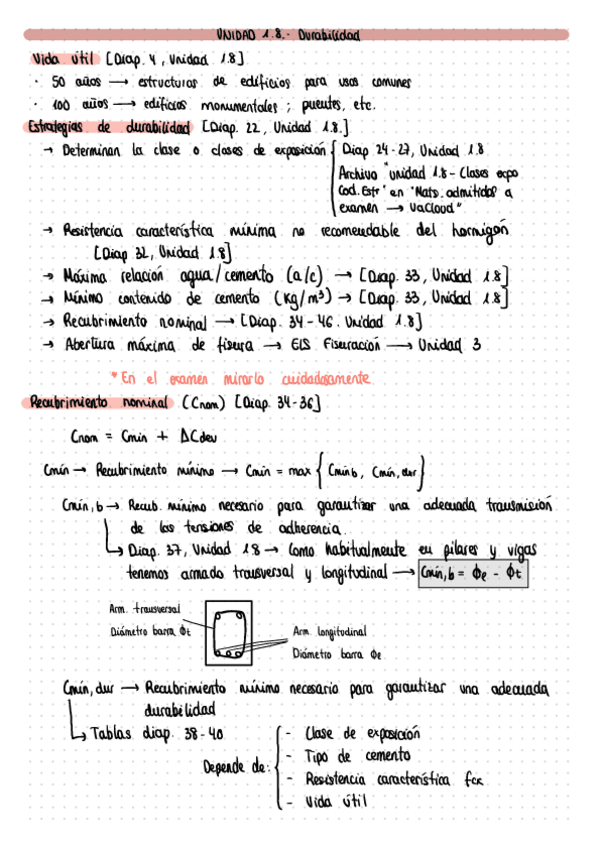 UNIDAD 1.8.- Durabilidad
Vida útil [Diap. 4, Unidad 1.8]
· 50 años → estructuras de edificios para usos comunes
· 100 años → edificios monumentales; puentes, etc.
Estrategias de durabilidad [Diap. 22, Unidad 1.8.]
→ Determinan la clase o clases de exposición { Diap 24-27, Unidad 1.8
Archivo "unidad 1.8 - Clases expo
Cod. Estr" en "Mats. admitidos a
examen → VaCloud"
→ Resistencia característica mínima no recomendable del hormigón
[Diap 32, Unidad 1.8]
→ Máxima relación agua/cemento (a/c) → [Diap. 33, Unidad 1.8]
→ Mínimo contenido de cemento (Kg/m³) → [Diap. 33, Unidad 1.8]
→ Recubrimiento nominal → [Diap. 34-46. Unidad 1.8]
→ Abertura máxima de fisura → ELS Fisuración → Unidad 3
* En el examen mirarlo cuidadosamente
Recubrimiento nominal (Cnom) [Diap. 34-36]
Cnom = Cmin + ΔCdev
Cmín → Recubrimiento mínimo → Cmin = max { Cmin b, Cmin, dur }
Cmín, b → Recub. mínimo necesario para garantizar una adecuada transmisión
de las tensiones de adherencia.
↳ Diap. 37, Unidad 1.8 → Como habitualmente en pilares y vigas
tenemos armado transversal y longitudinal → Cmin, b = ϕe - ϕt
Arm. transversal
Diámetro barra ϕt
Arm. longitudinal
Diámetro barra ϕe
Cmín, dur → Recubrimiento mínimo necesario para garantizar una adecuada
durabilidad
↳ Tablas diap. 38-40
Depende de: { - Clase de exposición
- Tipo de cemento
- Resistencia característica fck
- Vida útil